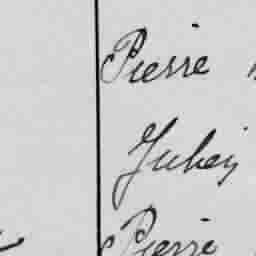 Pierre
Juhey
Pierre